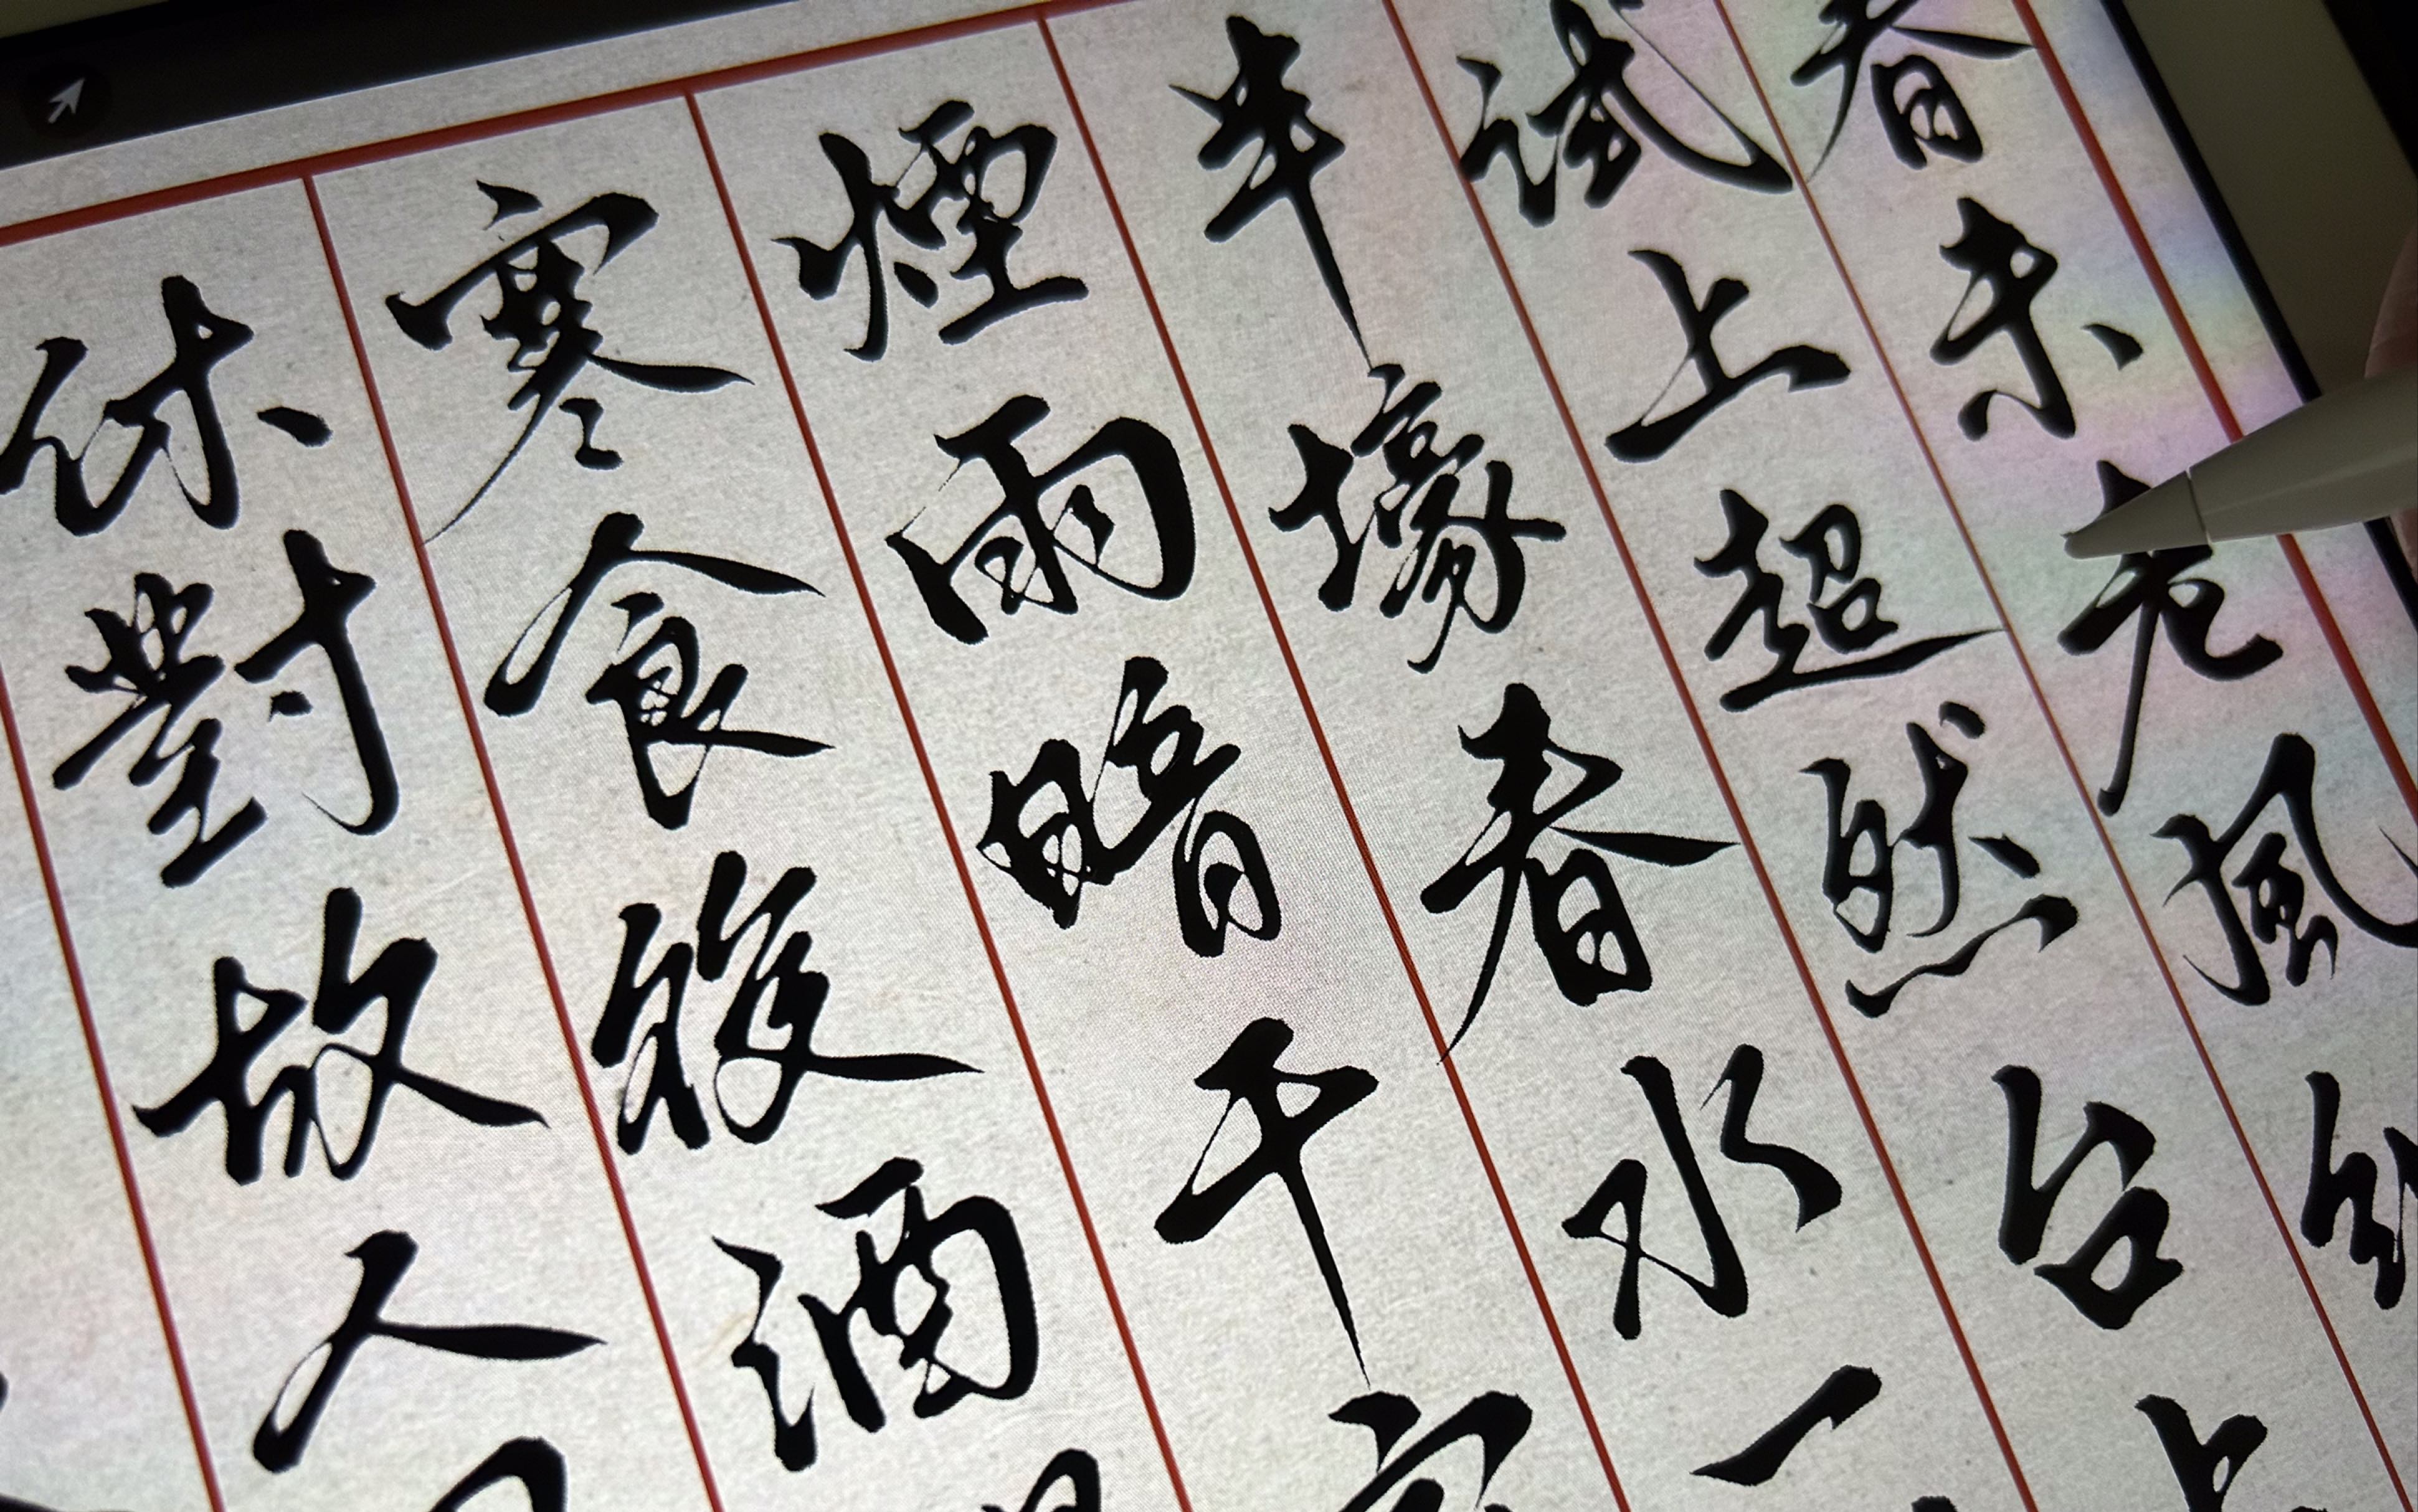 春未老風
試上超然台上
半壕春水一
煙雨暗千
寒食後酒
休對故人